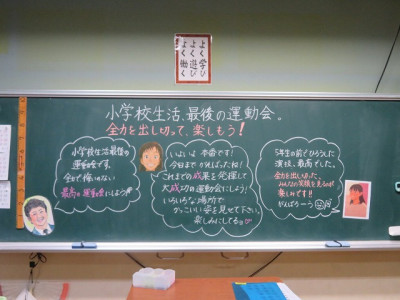 よく学び
よく遊び
よく働く
小学校生活、最後の運動会。
全力を出し切って、楽しもう!
小学校生活最後の
運動会です。
全力で悔いのない
最高の運動会にしよう!
いよいよ本番です!
今日までがんばったね!
これまでの成果を発揮して
大成功の運動会にしよう!
いろいろな場所で
かっこいい姿を見せて下さい。
楽しみにしてる。
5年生の前でひろうした
演技、最高でした。
全力を出し切った、
みんなの笑顔を見るのが
楽しみです!!
がんばろーう